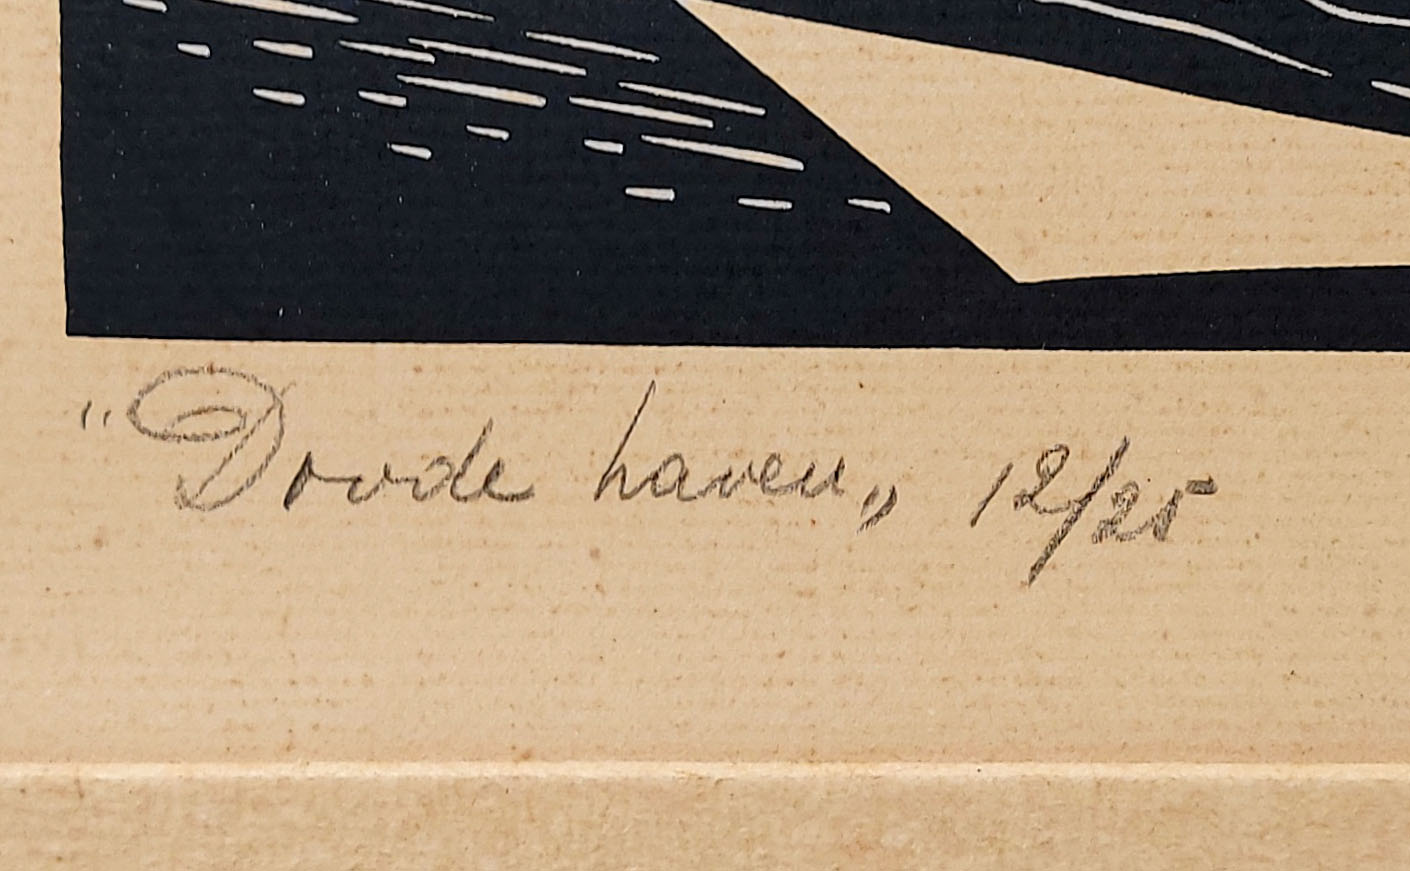 "Doode haven„ 12/25